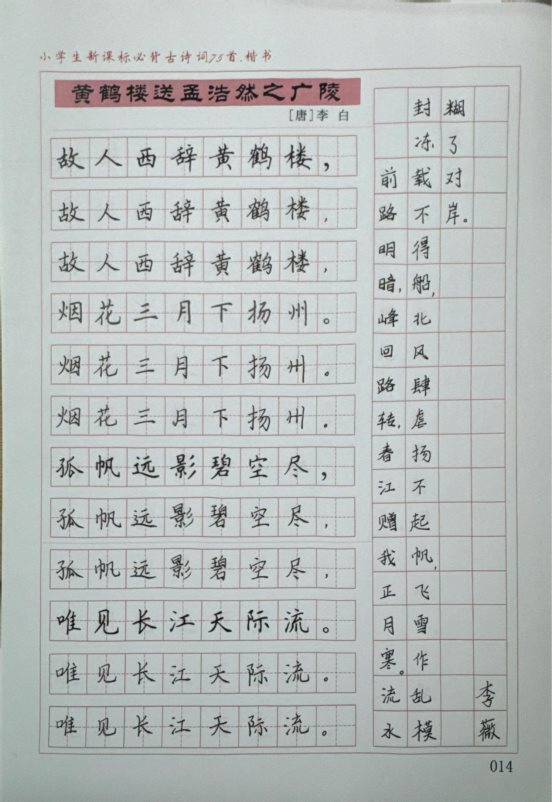 小学生新课标必背古诗词75首·楷书
黄鹤楼送孟浩然之广陵
[唐]李 白
故人西辞黄鹤楼，
故人西辞黄鹤楼，
故人西辞黄鹤楼，
烟花三月下扬州。
烟花三月下扬州。
烟花三月下扬州。
孤帆远影碧空尽，
孤帆远影碧空尽，
孤帆远影碧空尽，
唯见长江天际流。
唯见长江天际流。
唯见长江天际流。
前路明暗，峰回路转，春江赠我正月寒。流水
封冻载不得船，北风肆虐扬不起帆，飞雪作乱模
糊了对岸。
李薇
014